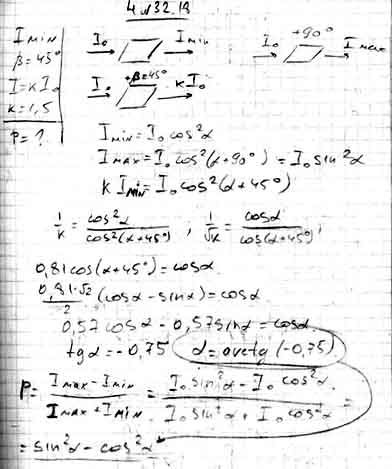 4 и 32.18
I min
β = 45°
I = k I₀
k = 1,5
P = ?
I₀ I min
I₀ +90° I max
I₀ +β=45° kI₀
I min = I₀ cos²α
I max = I₀ cos²(α+90°) = I₀ sin²α
k I min = I₀ cos²(α+45°)
1/k = cos²α / cos²(α+45°) ; 1/√k = cosα / cos(α+45°) ;
0,81 cos(α+45°) = cosα
0,81·√2 / 2 (cosα - sinα) = cosα
0,57 cosα - 0,57 sinα = cosα
tgα = -0,75 α = arctg(-0,75)
P = (I max - I min) / (I max + I min) = (I₀ sin²α - I₀ cos²α) / (I₀ sin²α + I₀ cos²α) =
= sin²α - cos²α